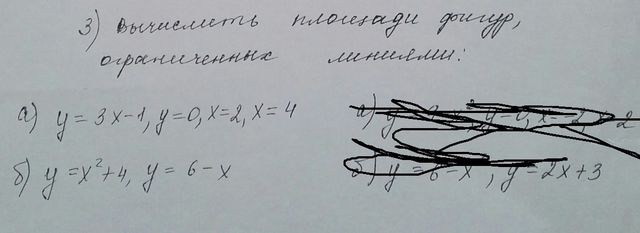 3) Вычислить площади фигур,
ограниченных линиями:
а) y = 3x-1, y=0, x=2, x=4
б) y = x²+4, y = 6-x
б) y = 6-x², y=2x+3